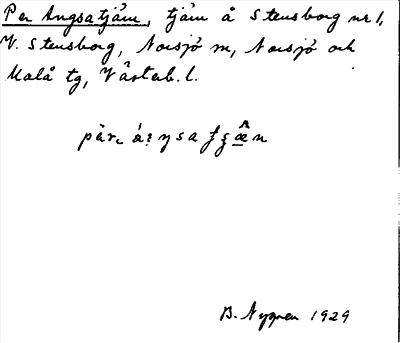 Per Angsatjärn, tjärn å Stensborg nr 1,
V. Stensborg, Norsjö sn, Norsjö och
Malå tg, Västerb. l.
B. Nygren 1929